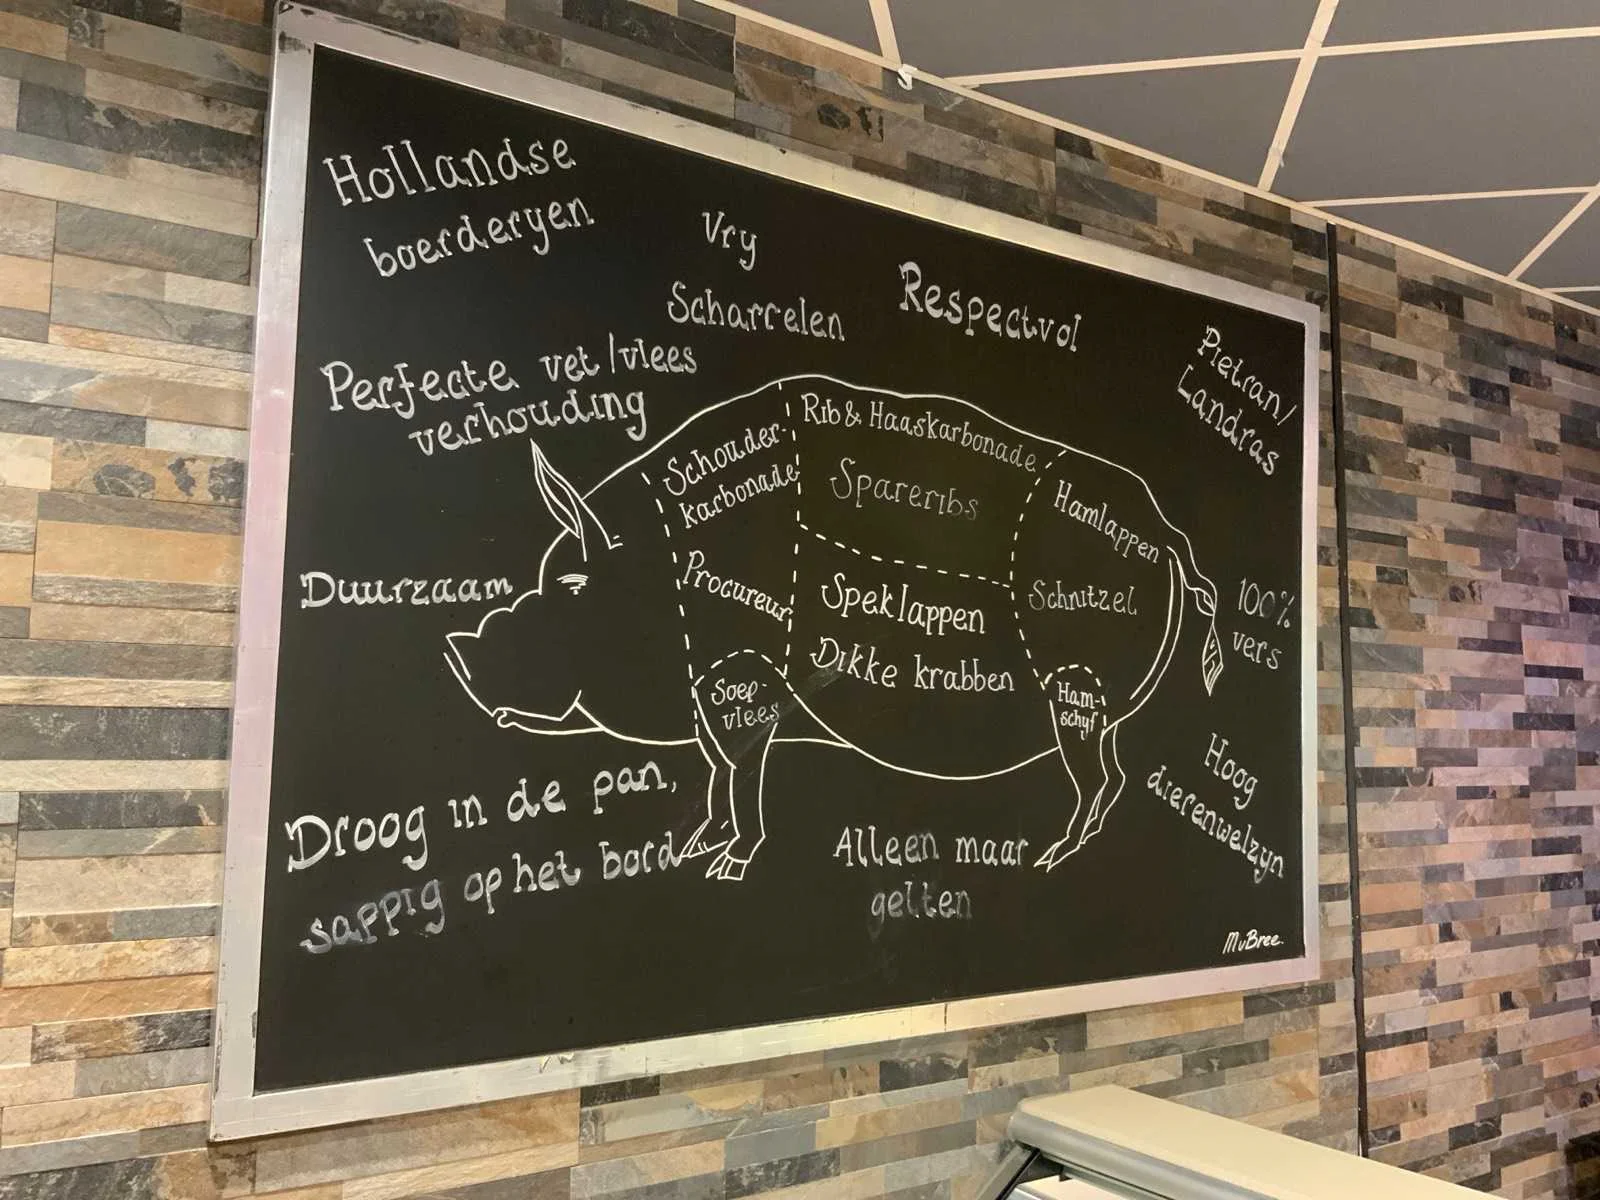 Hollandse
boerderyen
Vry
Scharrelen
Respectvol
Pietran/
Landras
Perfecte vet/vlees
verhouding
Schouder-
karbonade
Rib & Haaskarbonade
Spareribs
Hamlappen
Duurzaam
Procureur
Speklappen
Dikke krabben
Schnitzel
100%
vers
Soep-
vlees
Ham-
schyf
Droog in de pan,
sappig op het bord
Alleen maar
gelten
Hoog
dierenwelzyn
MvBree.